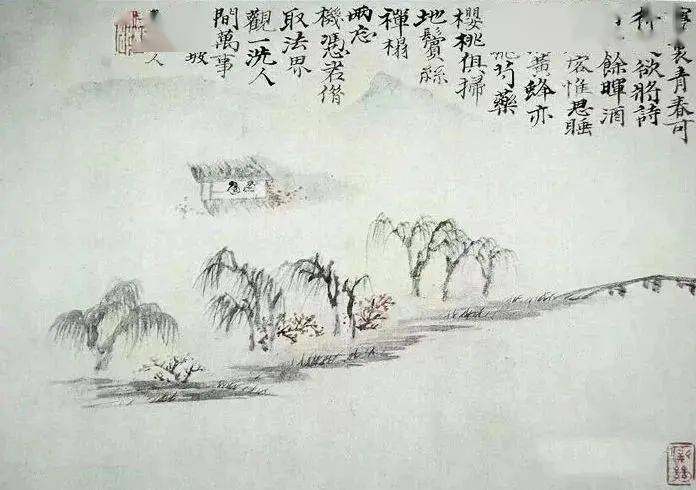 裏青春可
欲將詩
餘暉酒
客惟思睡
黃蜂亦
芍藥
櫻桃俱掃
地鬢絲
禪榻
兩忘
機憑君借
取法界
觀洗人
間萬事
坡
人